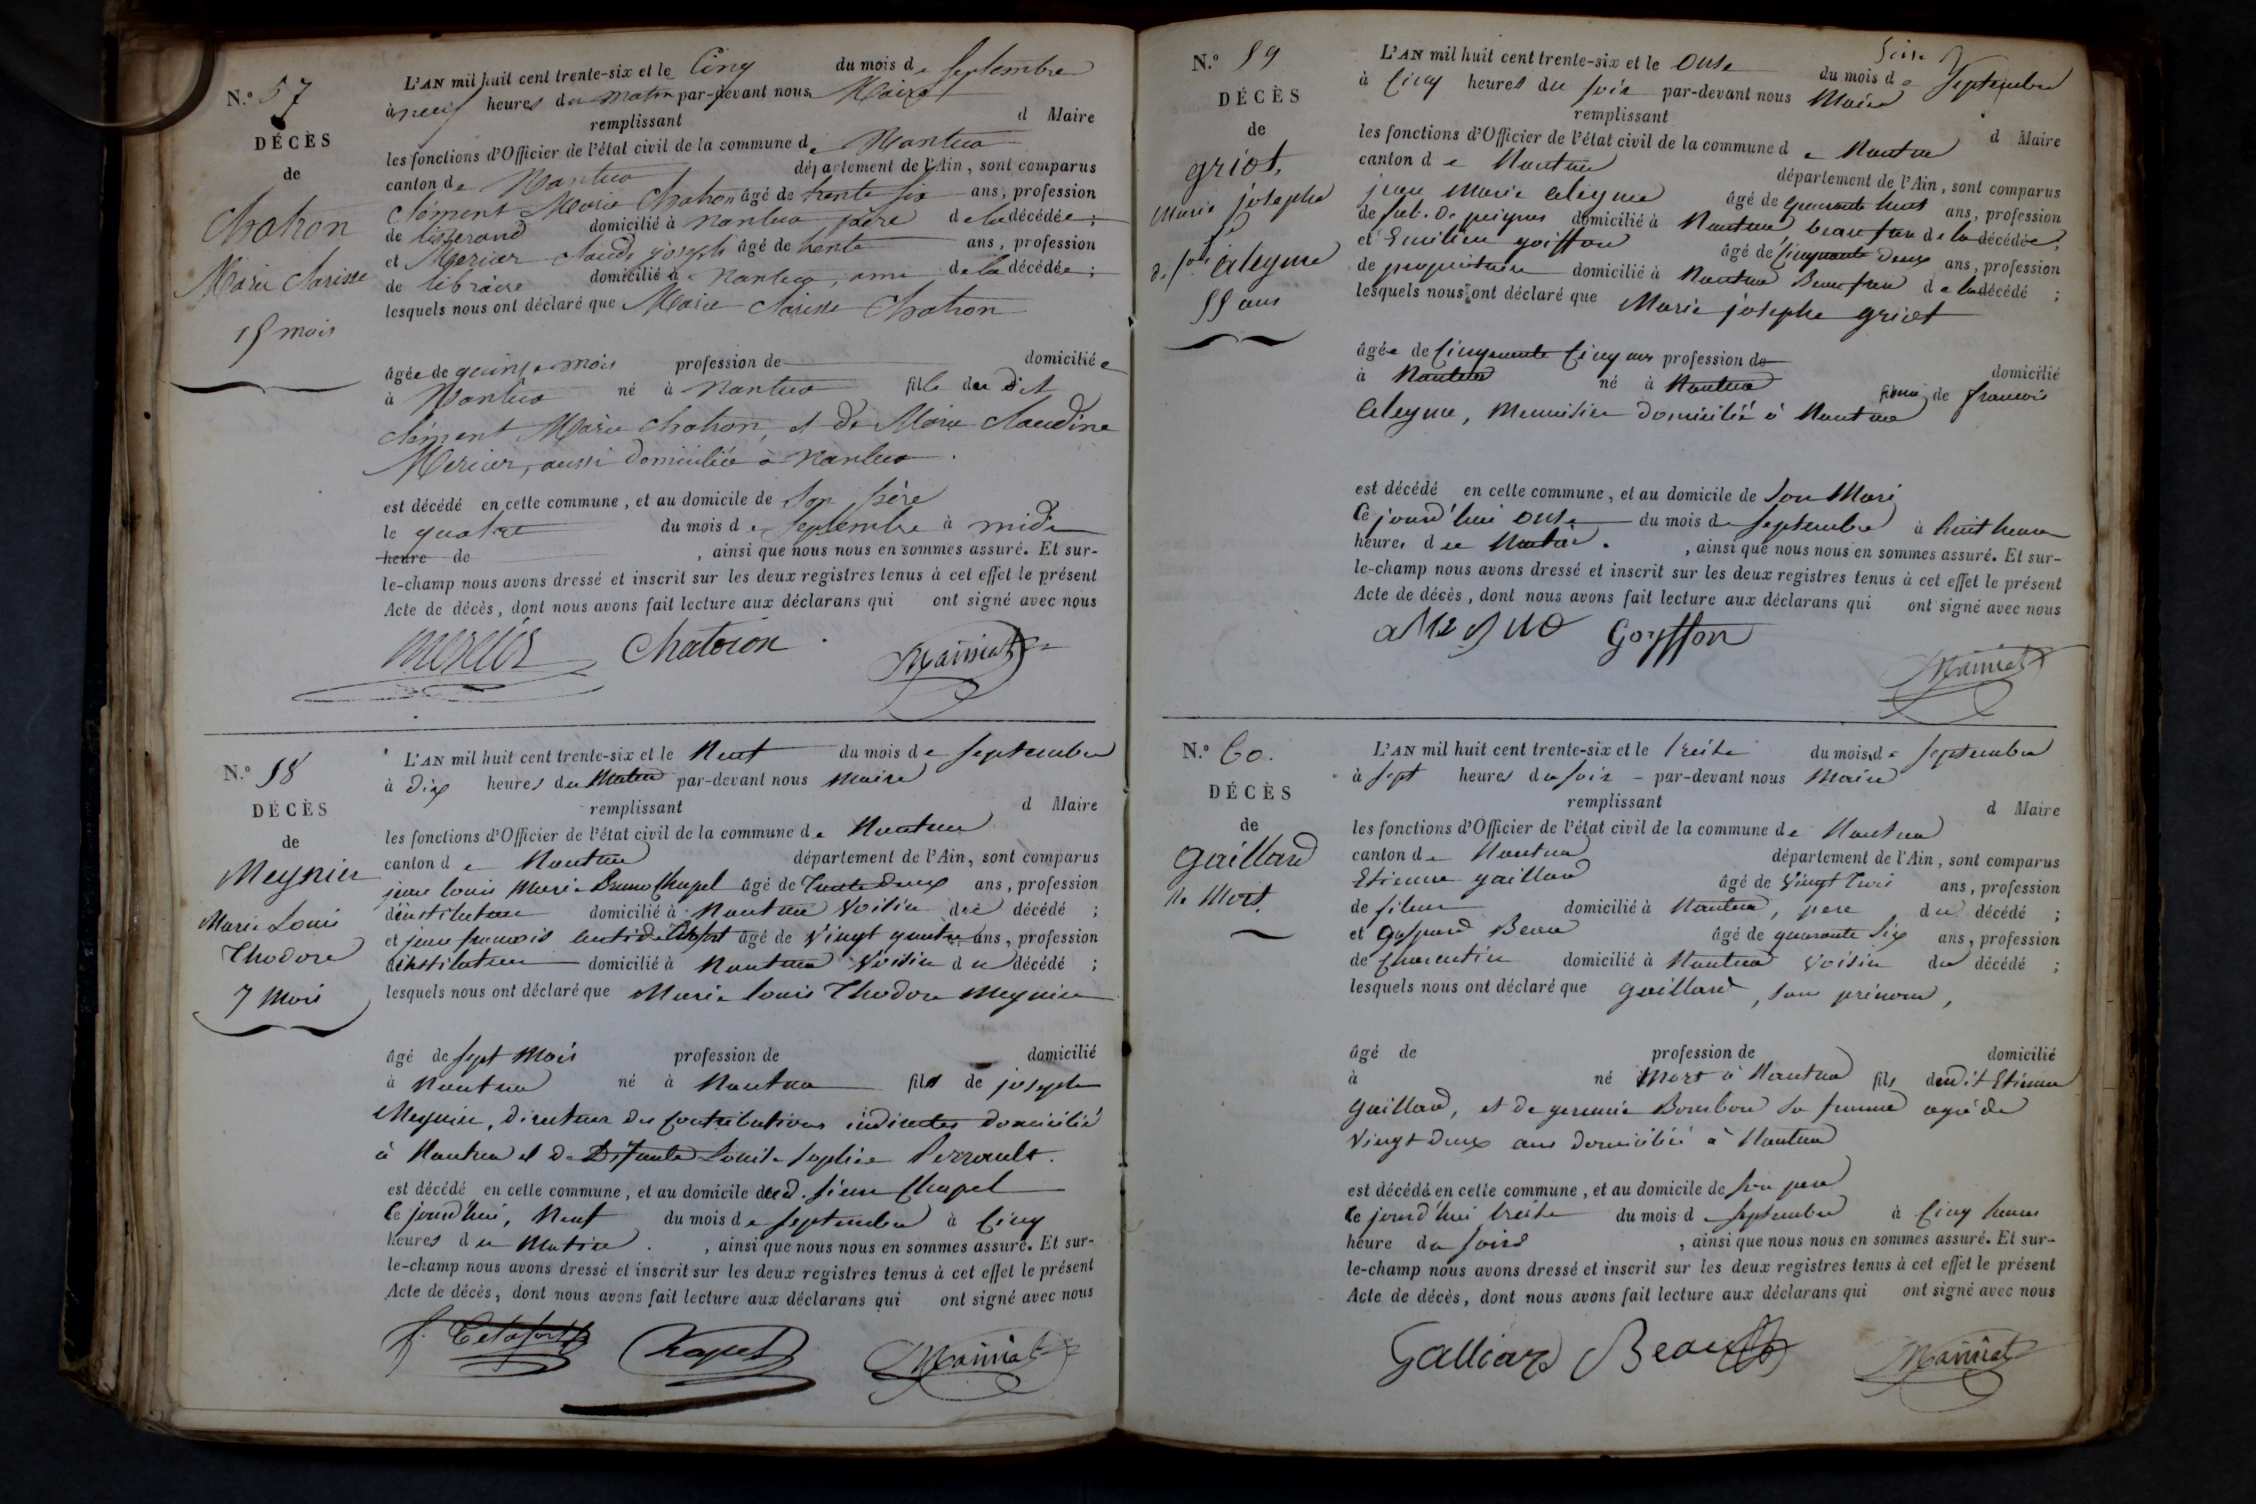 N.° 57
DÉCÈS
de
Chatron
Marie Clarisse
15 mois
L'AN mil huit cent trente-six et le Cinq du mois de Septembre
à neuf heures du matin par-devant nous Maire
remplissant d Maire
les fonctions d'Officier de l'état civil de la commune de Nantua
canton de Nantua département de l'Ain, sont comparus
Clément Marie Chatron âgé de trente six ans, profession
de tisserand domicilié à Nantua père de la décédée ;
et Mercier Claude joseph âgé de trente ans, profession
de libraire domicilié à Nantua, ami de la décédée ;
lesquels nous ont déclaré que Marie Clarisse Chatron
âgée de quinze mois profession de domiciliée
à Nantua né à Nantua fille du dit
Clément Marie Chatron, et de Marie Claudine
Mercier, aussi domiciliée à Nantua.
est décédé en cette commune, et au domicile de son père
le quatre du mois de Septembre à midi
heure de , ainsi que nous nous en sommes assuré. Et sur-
le-champ nous avons dressé et inscrit sur les deux registres tenus à cet effet le présent
Acte de décès, dont nous avons fait lecture aux déclarans qui ont signé avec nous
Mercier Chatron Mainiat
N.° 58
DÉCÈS
de
Meynier
Marie Louis
Thodore
7 Mois
L'AN mil huit cent trente-six et le Neuf du mois de Septembre
à dix heures du Matin par-devant nous Maire
remplissant d Maire
les fonctions d'Officier de l'état civil de la commune de Nantua
canton de Nantua département de l'Ain, sont comparus
jean louis Marie Bruno Chapel âgé de Trente deux ans, profession
d'instituteur domicilié à Nantua Voisin du décédé ;
et jean françois âgé de Vingt quatre ans, profession
d'instituteur domicilié à Nantua Voisin du décédé ;
lesquels nous ont déclaré que Marie Louis Thodore Meynier
âgé de Sept Mois profession de domicilié
à Nantua né à Nantua fils de joseph
Meynier, directeur des Contributions indirectes domicilié
à Nantua et de Défunte Louise Sophie Perrault.
est décédé en cette commune, et au domicile dud. Sieur Chapel
Ce jourd'hui, Neuf du mois de Septembre à Cinq
heures du Matin. , ainsi que nous nous en sommes assuré. Et sur-
le-champ nous avons dressé et inscrit sur les deux registres tenus à cet effet le présent
Acte de décès, dont nous avons fait lecture aux déclarans qui ont signé avec nous
Chapel Mainiat
N.° 59
DÉCÈS
de
griot,
Marie josephe
fe
de fois aleyme
55 ans
L'AN mil huit cent trente-six et le Onse du mois de Septembre
à Cinq heures du soir par-devant nous Maire
remplissant d Maire
les fonctions d'Officier de l'état civil de la commune de Nantua
canton de Nantua département de l'Ain, sont comparus
jean Marie aleyme âgé de quarante huit ans, profession
de fab. de peignes domicilié à Nantua beaufrere de la décédée ;
et Emilien goiffon âgé de Cinquante deux ans, profession
de propriétaire domicilié à Nantua Beaufrere de la décédé ;
lesquels nous ont déclaré que Marie josephe griot
âgée de Cinquante Cinq ans profession de domicilié
à Nantua né à Nantua femme de francois
aleyme, Menuisier domicilié à Nantua
est décédé en cette commune, et au domicile de son Mari
Ce jourd'hui onse du mois de Septembre à huit heures
heures du Matin. , ainsi que nous nous en sommes assuré. Et sur-
le-champ nous avons dressé et inscrit sur les deux registres tenus à cet effet le présent
Acte de décès, dont nous avons fait lecture aux déclarans qui ont signé avec nous
Goyffon Mainiat
N.° 60.
DÉCÈS
de
gaillard
Né Mort.
L'AN mil huit cent trente-six et le treize du mois de Septembre
à Sept heures du soir - par-devant nous Maire
remplissant d Maire
les fonctions d'Officier de l'état civil de la commune de Nantua
canton de Nantua département de l'Ain, sont comparus
Etienne gaillard âgé de Vingt trois ans, profession
de fileur domicilié à Nantua, pere du décédé ;
et gaspard Beau âgé de quarante Six ans, profession
de Charcutier domicilié à Nantua Voisin du décédé ;
lesquels nous ont déclaré que gaillard, sans prénom,
âgé de profession de domicilié
à né Mort à Nantua fils dudit Etienne
gaillard, et de Bourbon sa femme agée de
Vingt deux ans domiciliée à Nantua
est décédé en cette commune, et au domicile de son pere
Ce jourd'hui treize du mois de Septembre à Cinq heures
heure du soir , ainsi que nous nous en sommes assuré. Et sur-
le-champ nous avons dressé et inscrit sur les deux registres tenus à cet effet le présent
Acte de décès, dont nous avons fait lecture aux déclarans qui ont signé avec nous
Galliard Beau Mainiat